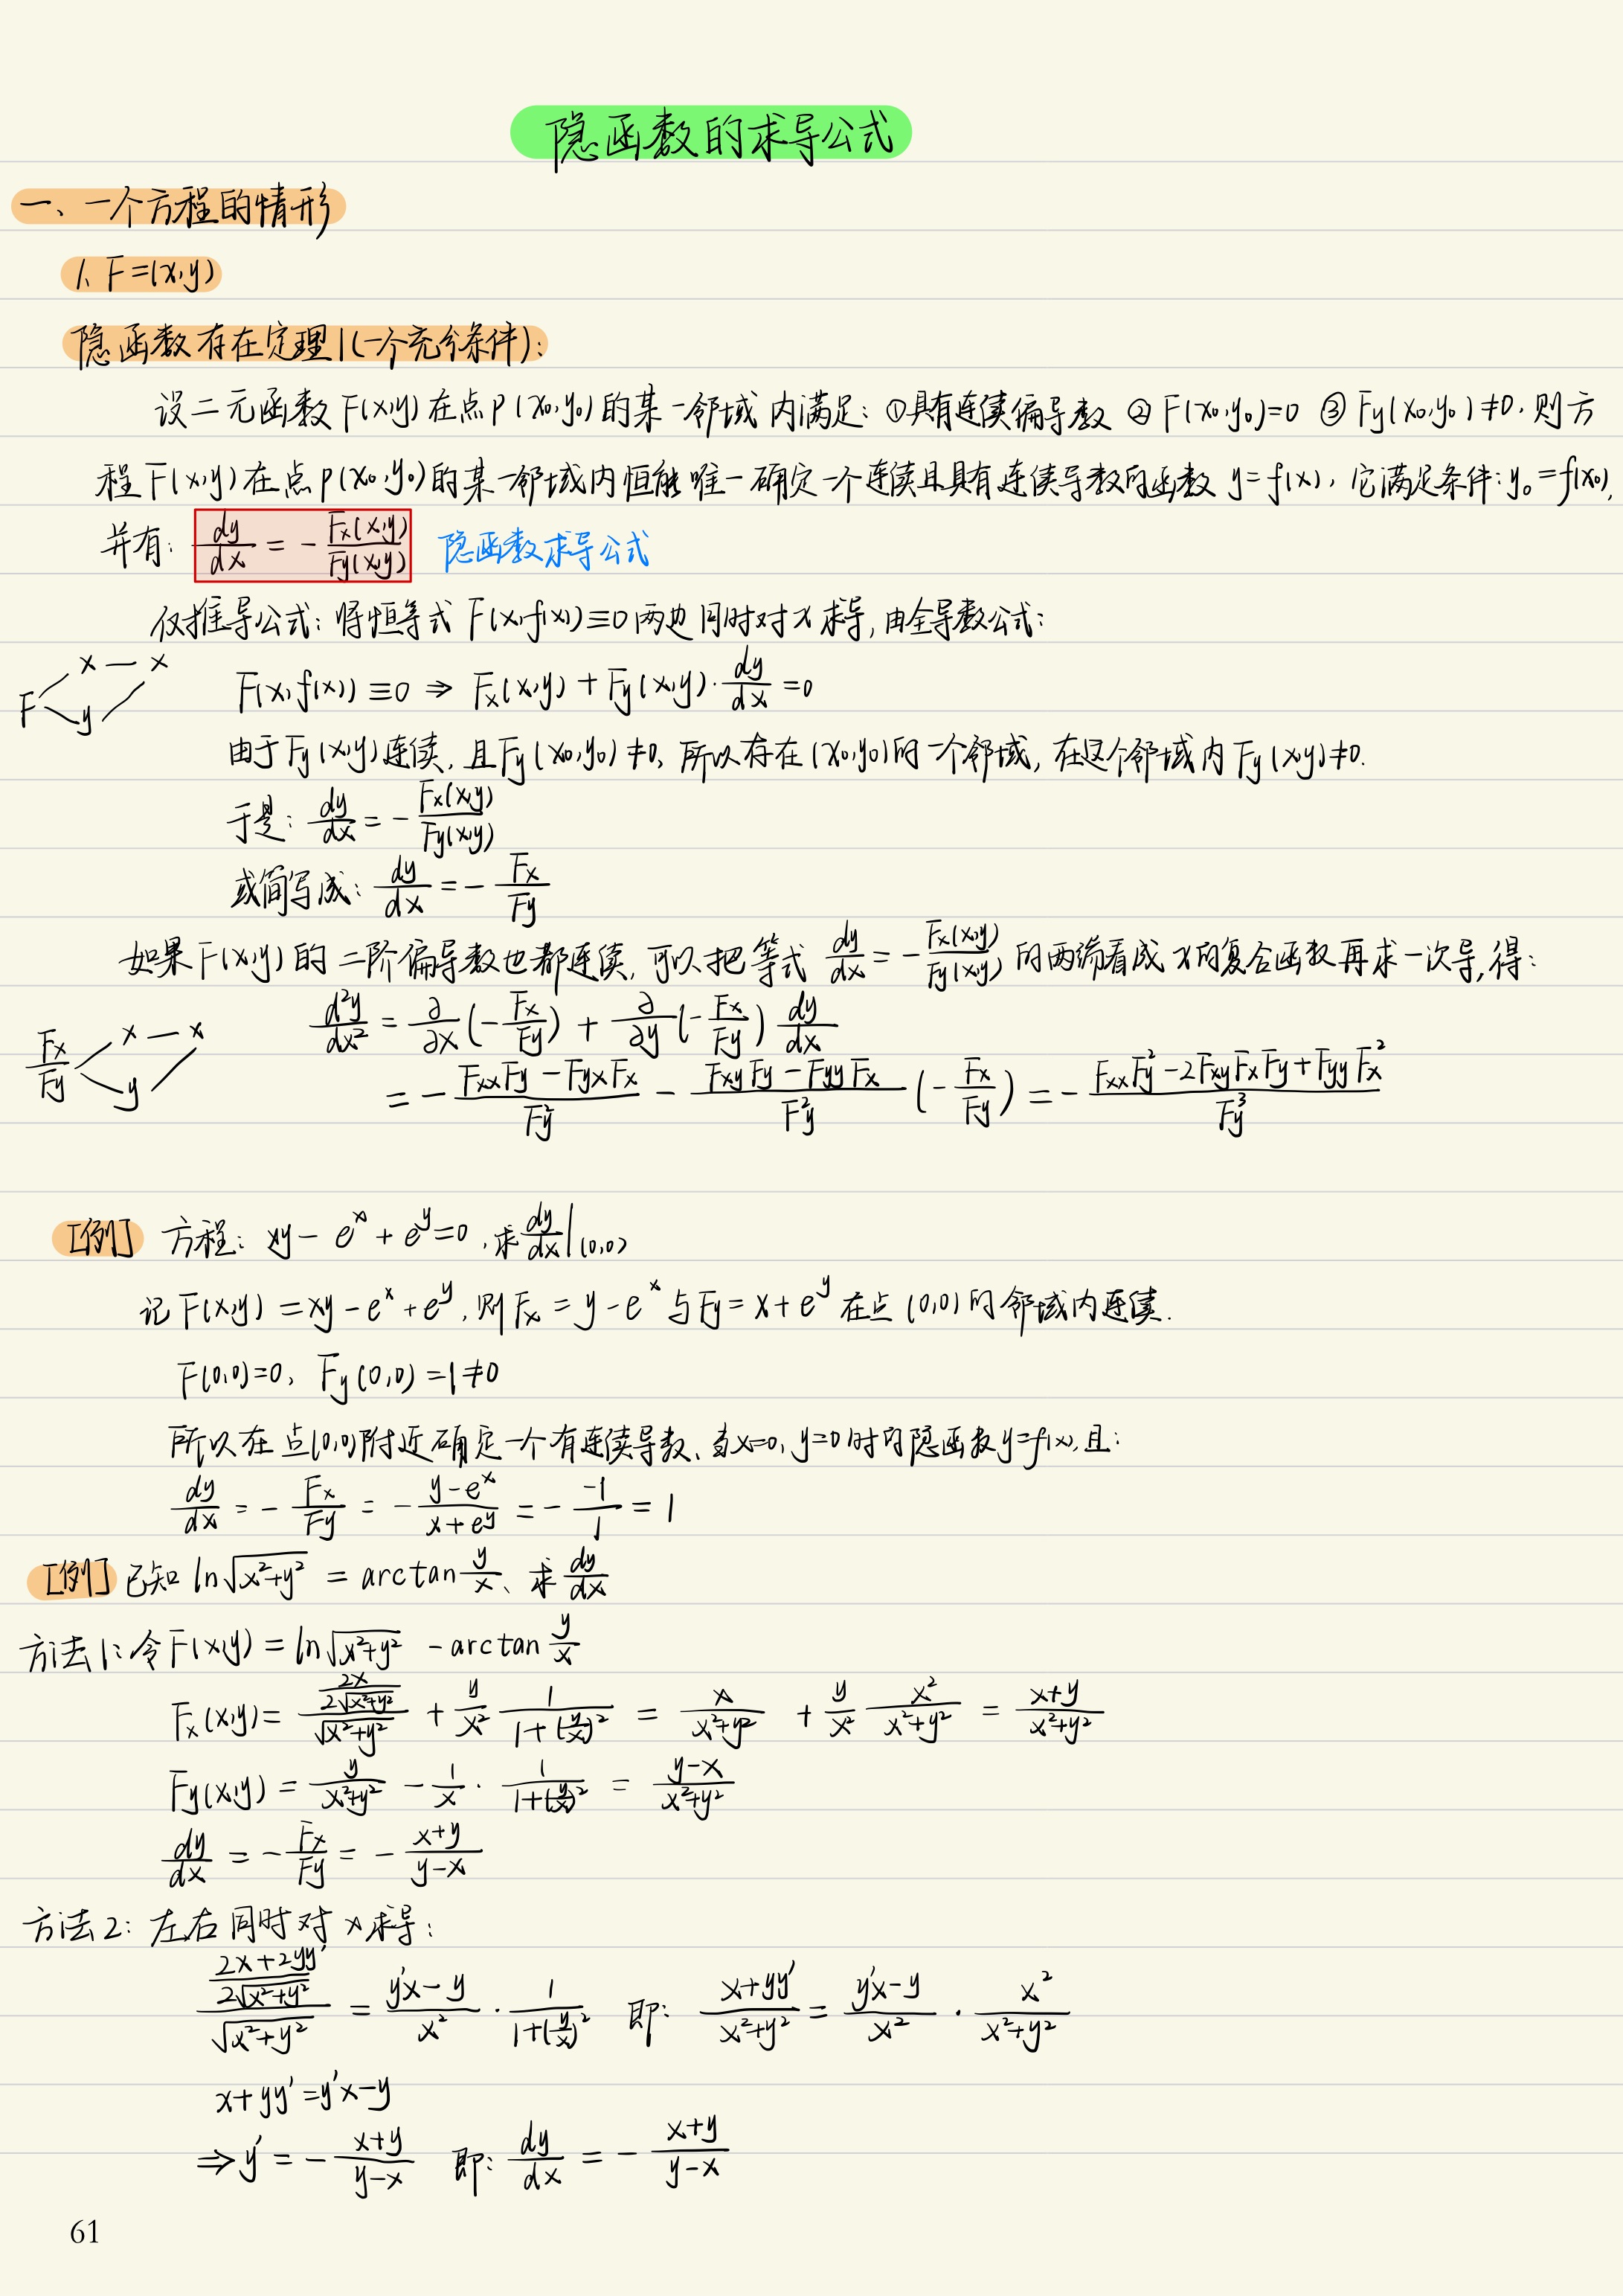 隐函数的求导公式
一、一个方程的情形
1、F=(x,y)
隐函数存在定理1(一个充分条件):
设二元函数F(x,y)在点P(x₀,y₀)的某一邻域内满足:①具有连续偏导数 ②F(x₀,y₀)=0 ③Fy(x₀,y₀)≠0,则方
程F(x,y)在点P(x₀,y₀)的某一邻域内恒能唯一确定一个连续且具有连续导数的函数 y=f(x),它满足条件:y₀=f(x₀),
并有: dy/dx = -Fx(x,y)/Fy(x,y) 隐函数求导公式
仅推导公式:将恒等式 F(x,f(x))≡0两边同时对x求导,由全导数公式:
F x — x y
F(x,f(x))≡0 ⇒ Fx(x,y)+Fy(x,y)·dy/dx=0
由于Fy(x,y)连续,且Fy(x₀,y₀)≠0,所以存在(x₀,y₀)的一个邻域,在这个邻域内Fy(x,y)≠0.
于是: dy/dx = -Fx(x,y)/Fy(x,y)
或简写成: dy/dx = -Fx/Fy
如果F(x,y)的二阶偏导数也都连续,可以把等式 dy/dx=-Fx(x,y)/Fy(x,y) 的两端看成x的复合函数再求一次导,得:
Fx/Fy x — x y
d²y/dx² = ∂/∂x(-Fx/Fy) + ∂/∂y(-Fx/Fy) dy/dx
= -(FxxFy-FyxFx)/Fy² - (FxyFy-FyyFx)/Fy² (-Fx/Fy) = -(FxxFy²-2FxyFxFy+FyyFx²)/Fy³
[例] 方程: xy-eˣ+eʸ=0,求dy/dx|(0,0)
记F(x,y)=xy-eˣ+eʸ,则Fx=y-eˣ与Fy=x+eʸ在点(0,0)的邻域内连续.
F(0,0)=0, Fy(0,0)=1≠0
所以在点(0,0)附近确定一个有连续导数、当x=0,y=0时的隐函数y=f(x),且:
dy/dx = -Fx/Fy = -(y-eˣ)/(x+eʸ) = -(-1)/1 = 1
[例] 已知 ln√(x²+y²) = arctan y/x、求 dy/dx
方法1:令F(x,y)=ln√(x²+y²) -arctan y/x
Fx(x,y)= (2x/(2√(x²+y²)))/√(x²+y²) + y/x² 1/(1+(y/x)²) = x/(x²+y²) + y/x² x²/(x²+y²) = (x+y)/(x²+y²)
Fy(x,y) = y/(x²+y²) - 1/x · 1/(1+(y/x)²) = (y-x)/(x²+y²)
dy/dx = -Fx/Fy = -(x+y)/(y-x)
方法2:左右同时对x求导:
((2x+2yy′)/(2√(x²+y²)))/√(x²+y²) = (y′x-y)/x² · 1/(1+(y/x)²) 即: (x+yy′)/(x²+y²) = (y′x-y)/x² · x²/(x²+y²)
x+yy′=y′x-y
⇒y′ = -(x+y)/(y-x) 即: dy/dx = -(x+y)/(y-x)
61